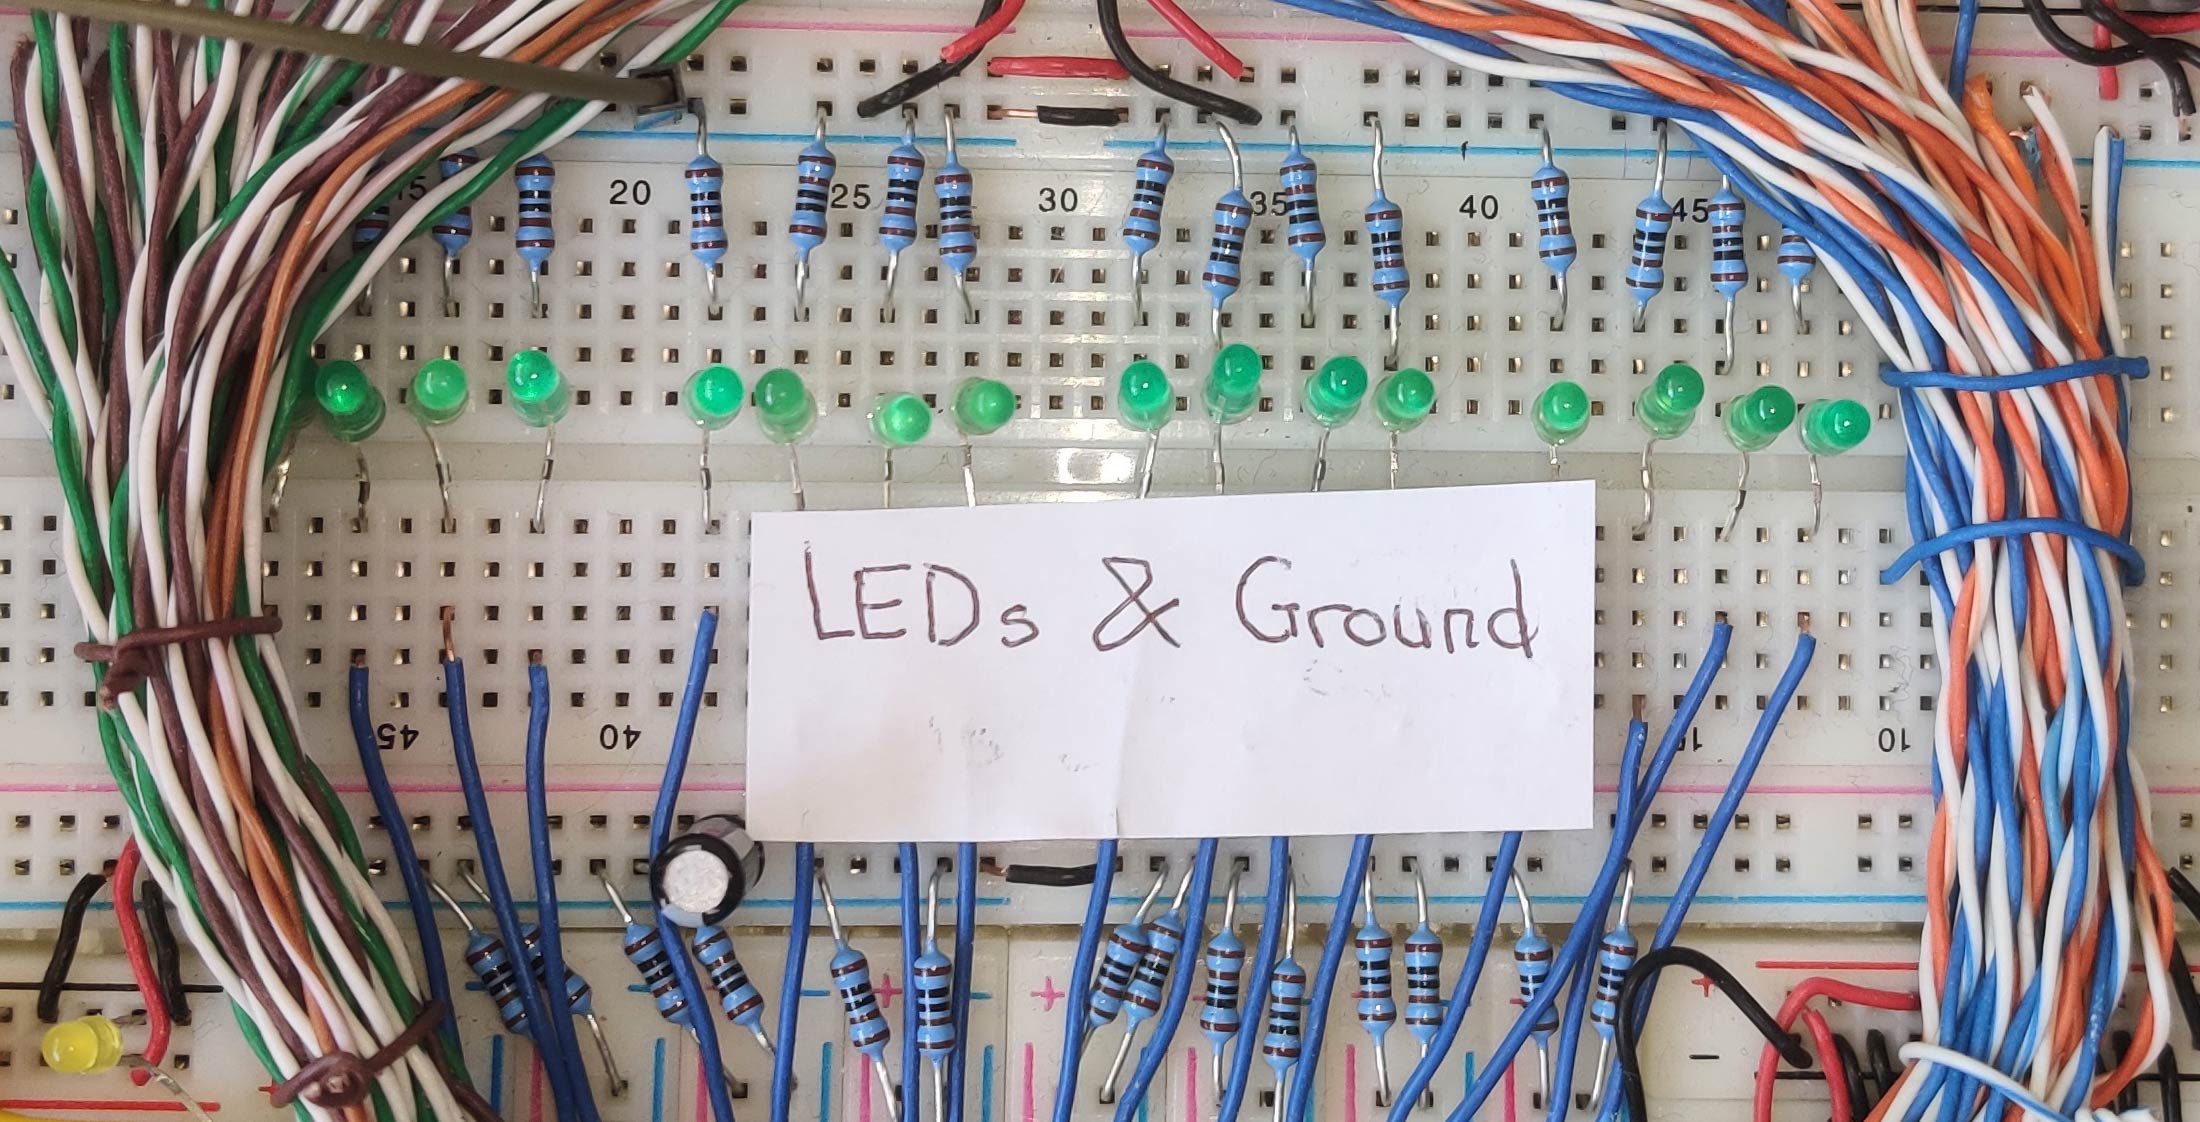 15 20 25 30 35 40 45
LEDs & Ground
45 40 15 10
+ + +
-